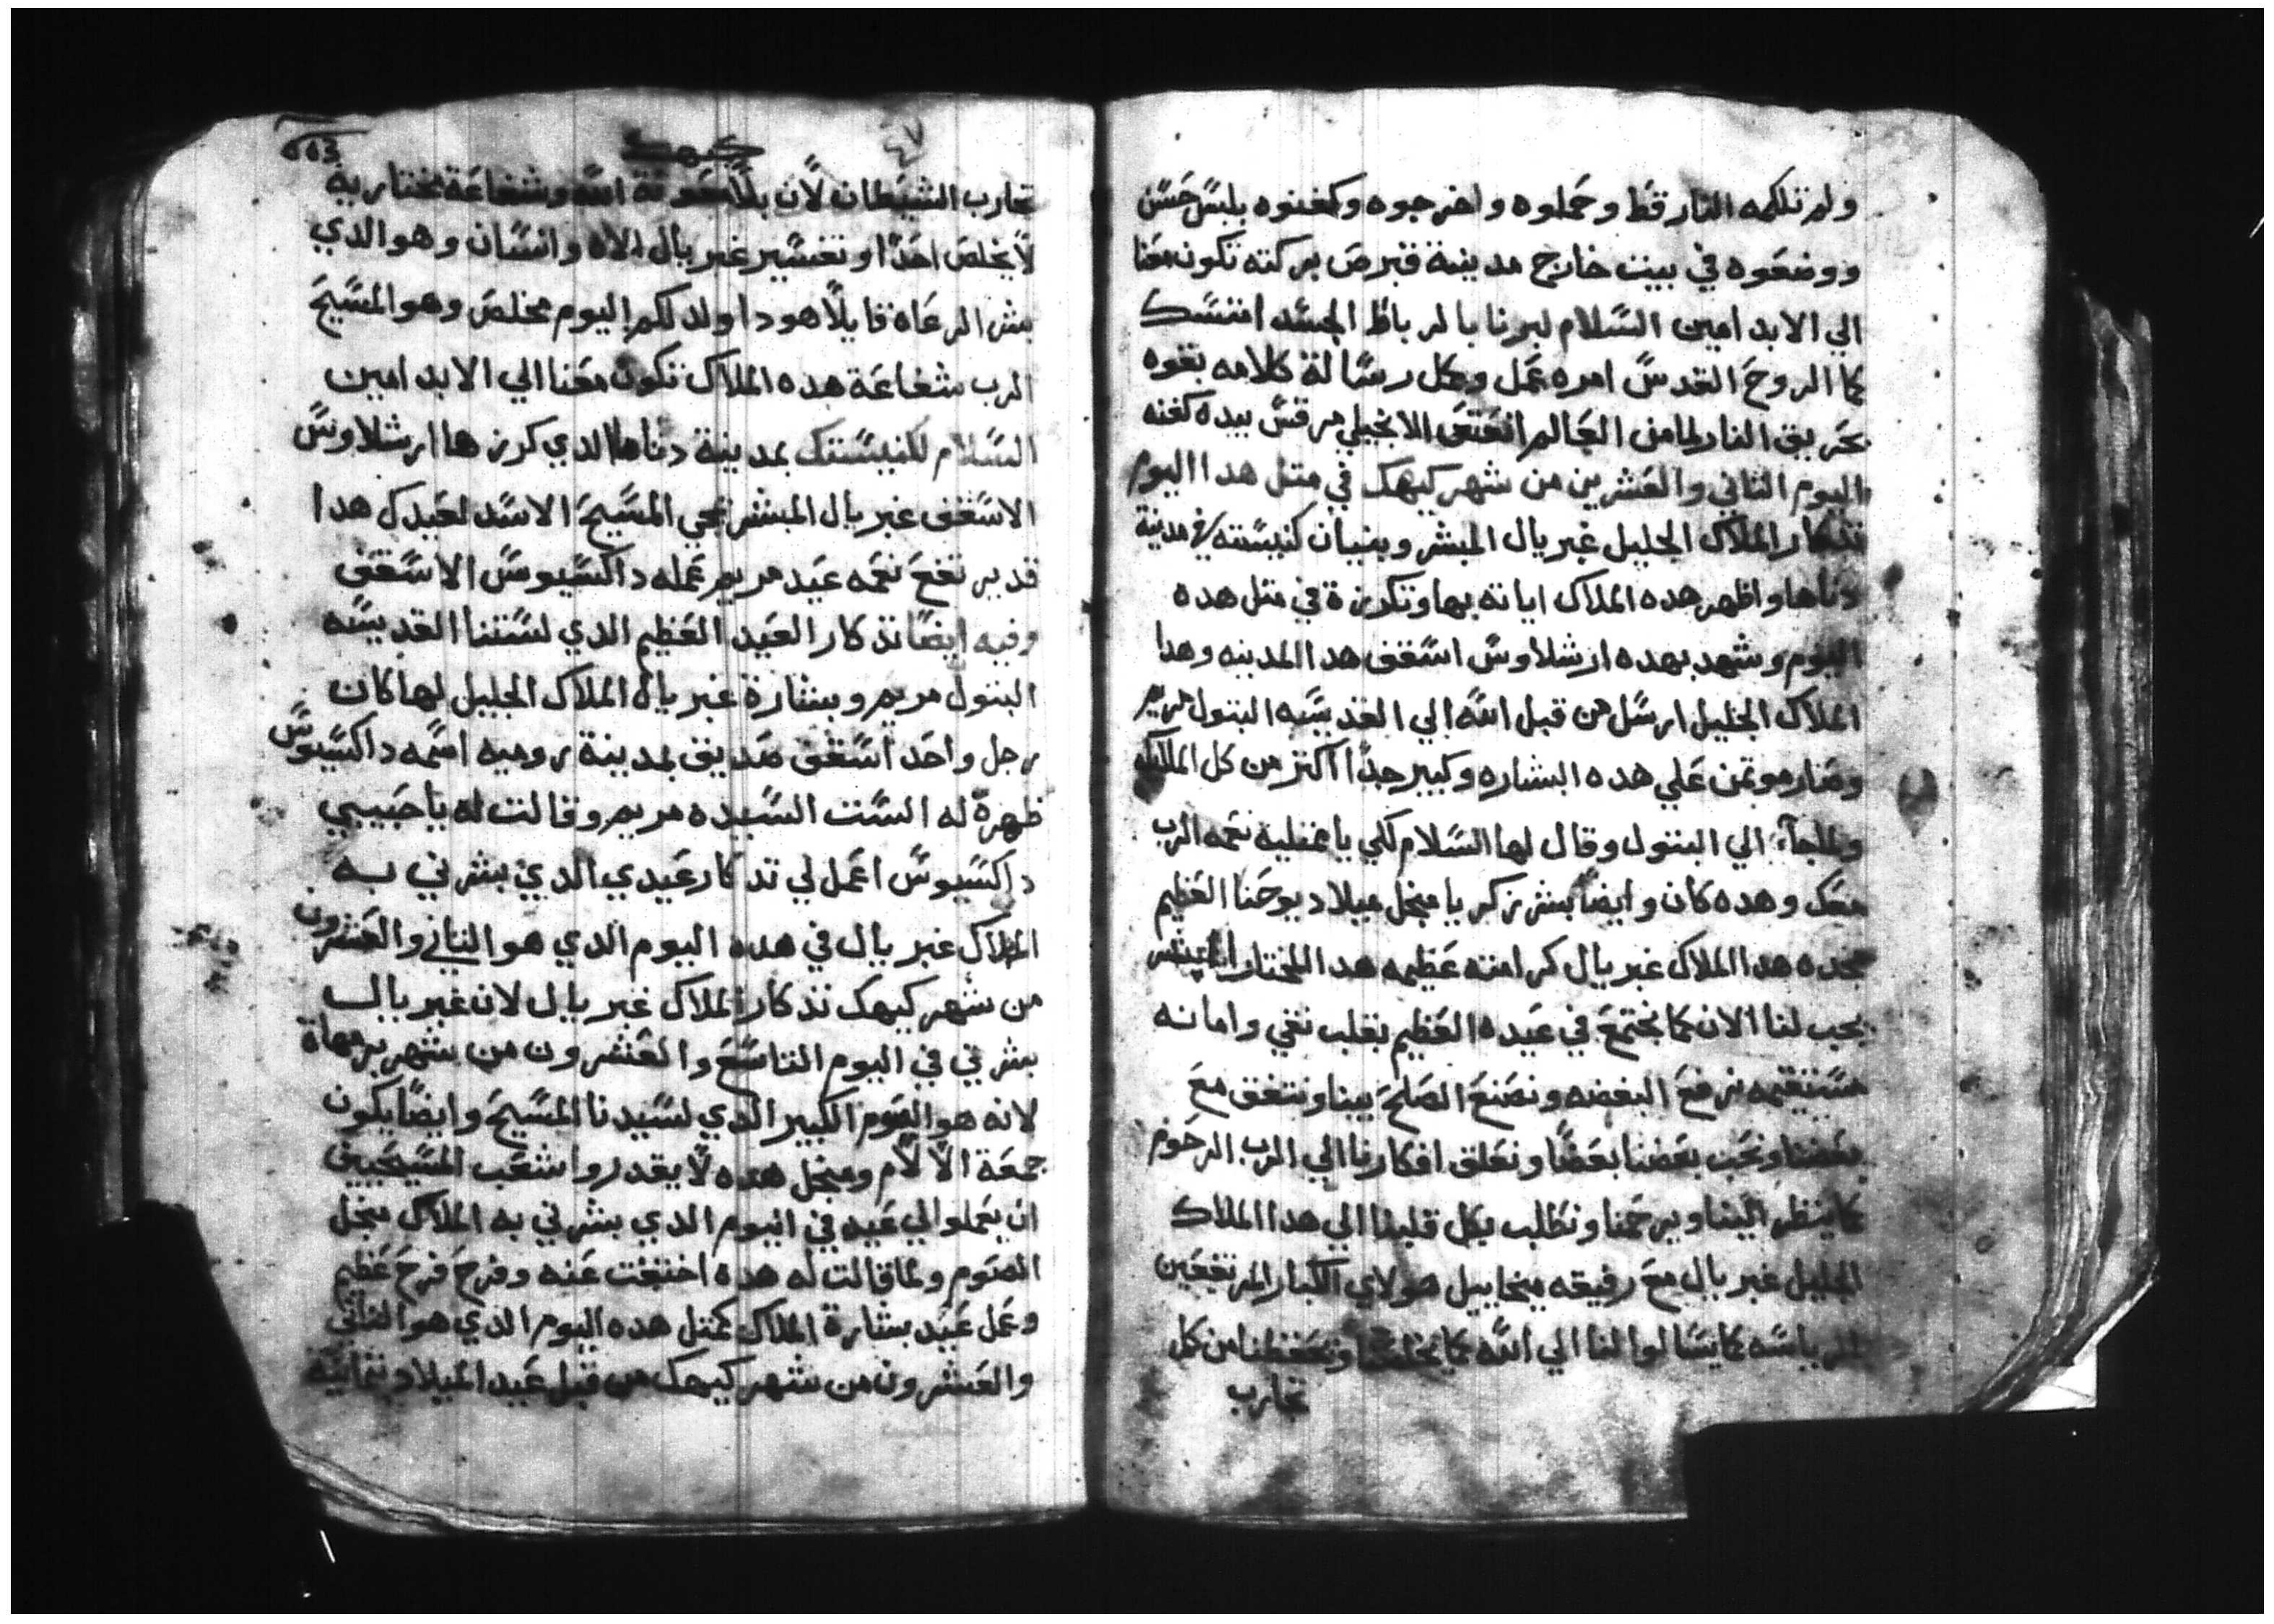 ولم تلكمه النار قط وحملوه واخرجوه وكفنوه بلبس حسن
ووضعوه في بيت خارج مدينة قبرص بركته تكون معنا
الي الابد امين السلام لبرنا بالرباط الجسد امتسك
كما الروح القدس امره عمل وكل رسالة كلامه بقوه
بحريق النار لما من العالم انعتق الانجيلي مرقس بيده كفنه
اليوم التاني والعشرين من شهر كيهك في متل هدا اليوم
تدكار الملاك الجليل غبريال المبشر وبنيان كنيسته في مدينة
دناها واظهر هده الملاك اياته بها وتكرزة في متل هده
اليوم وشهد بهده ارشلاوس اسقف هدا المدينه وهدا
الملاك الجليل ارسل من قبل الله الي القديسه البتول مريم
وصار موتمن علي هده البشاره وكبير جدا اكتر من كل الملايك
ولما جآء الي البتول وقال لها السلام لكي يا ممتلية نعمه الرب
معك وهده كان وايضا بشر زكريا منجل ميلاد يوحنا العظيم
مجده هدا الملاك غبريال كرامته عظيمه هدا المختار المبشر
يجب لنا الان كما نجتمع في عيده العظيم بقلب نقي وامانه
مستقيمه نرفع البغضه ونصنع الصلح بيننا ونتفق مع
بعضنا ونحب بعضنا بعضا ونعلق افكارنا الي الرب الرحوم
كما ينظر الينا ويرحمنا ونطلب بكل قلبنا الي هدا الملاك
الجليل غبريال مع رفيقه ميخاييل هولاي الكبار المرتفعين
الرياسه كما يسالوا لنا الي الله كما يخلصنا ويحفظنا من كل
تجارب
663
كيهك
٤٧
تجارب الشيطان لان بلا معونة الله وشفاعة مختاريه
لا يخلص احدا وتفسير غبريال الاه وانسان وهو الدي
بشر الرعاه قايلا هودا ولد لكم اليوم مخلص وهو المسيح
الرب شفاعة هده الملاك تكون معنا الي الابد امين
السلام لكنيستك بمدينة دناها الدي كرزها ارشلاوس
الاسقف غبريال المبشر بمجي المسيح الاسد لعيدك هدا
قد يرتفع نعمه عيد مريم عمله داكسيوس الاسقف
وفيه ايضا تدكار العيد العظيم الدي لستنا القديسه
البتول مريم وبشارة غبريال الملاك الجليل لها كان
رجل واحد اسقف صديق بمدينة روميه اسمه داكسيوس
ظهرة له الست السيده مريم وقالت له يا حبيبي
داكسيوس اعمل لي تدكار عيدي الدي بشرني به
الملاك غبريال في هده اليوم الدي هو التاني والعشرون
من شهر كيهك تدكار الملاك غبريال لان غبريال
بشرني في اليوم التاسع والعشرون من شهر برمهاة
لانه هو الصوم الكبير الدي لسيدنا المسيح وايضا يكون
جمعة الالام ومنجل هده لا يقدروا شعب المسيحيين
ان يعملوا لي عيد في اليوم الدي بشرني به الملاك منجل
الصوم ولما قالت له هده اختفت عنه وفرح فرح عظيم
وعمل عيد بشارة الملاك كمتل هده اليوم الدي هو التاني
والعشرون من شهر كيهك من قبل عيد الميلاد بتمانية